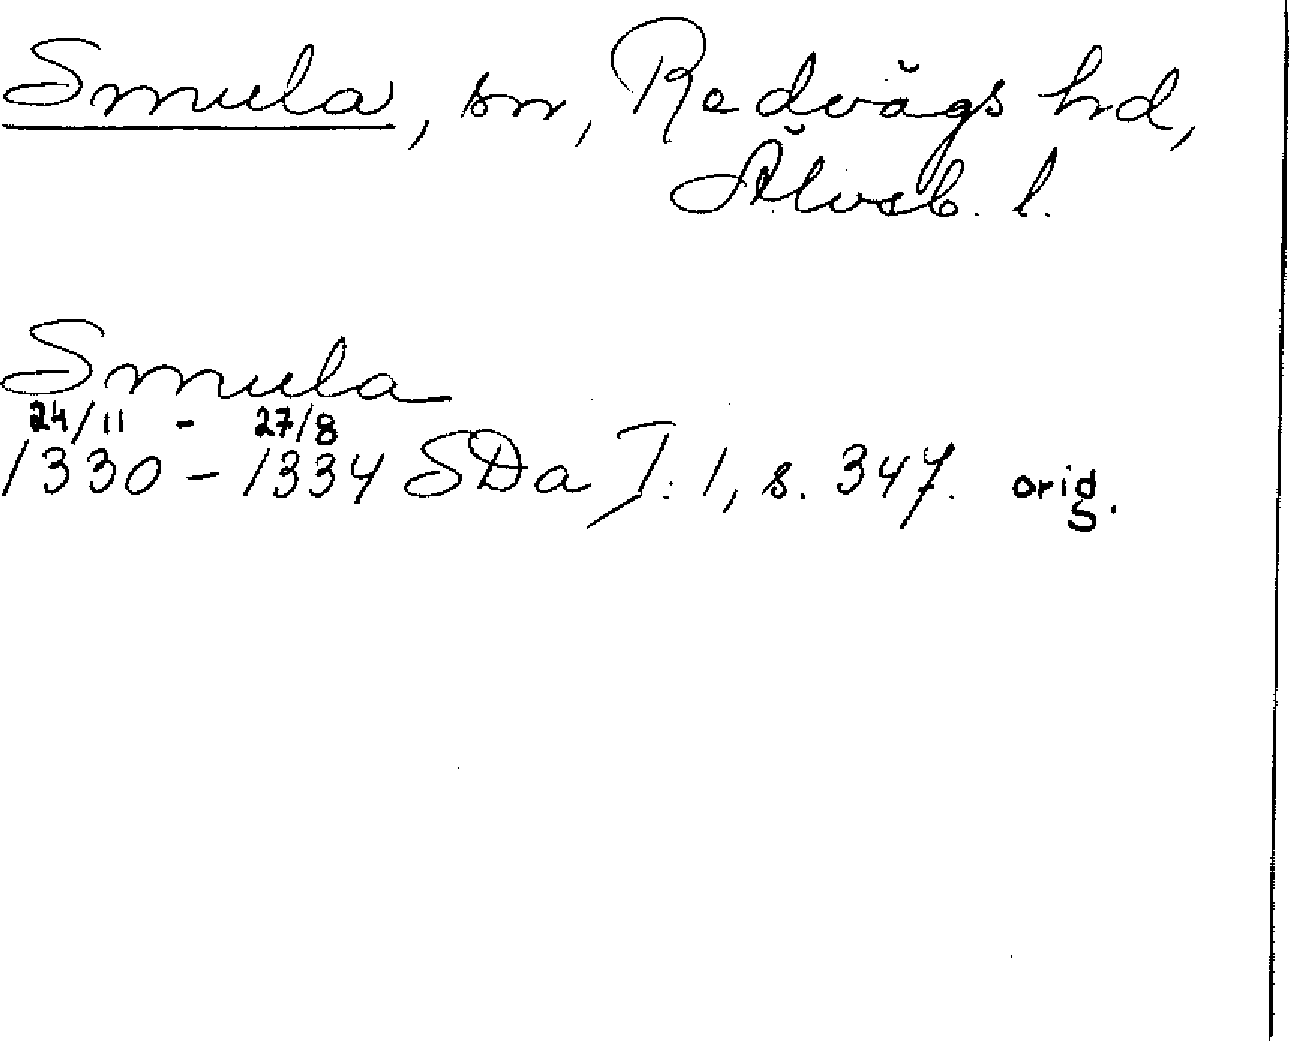 Smula, sn, Redvägs hd,
Älvsb. l.
Smula
24/11 - 27/8
1330-1334 SDa I:1, s. 347. orig.